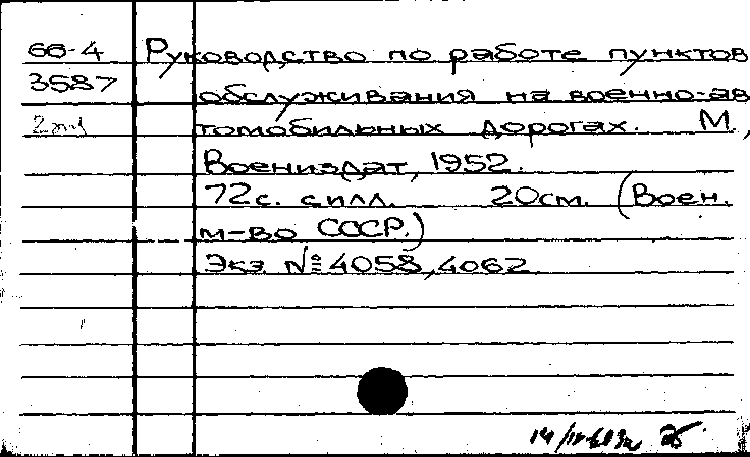 66-4 Руководство по работе пунктов
3587 обслуживания на военно-ав
томобильных дорогах. М.,
Воениздат, 1952.
72с. с илл. 20см. (Воен.
м-во СССР.)
Экз №4058,4062